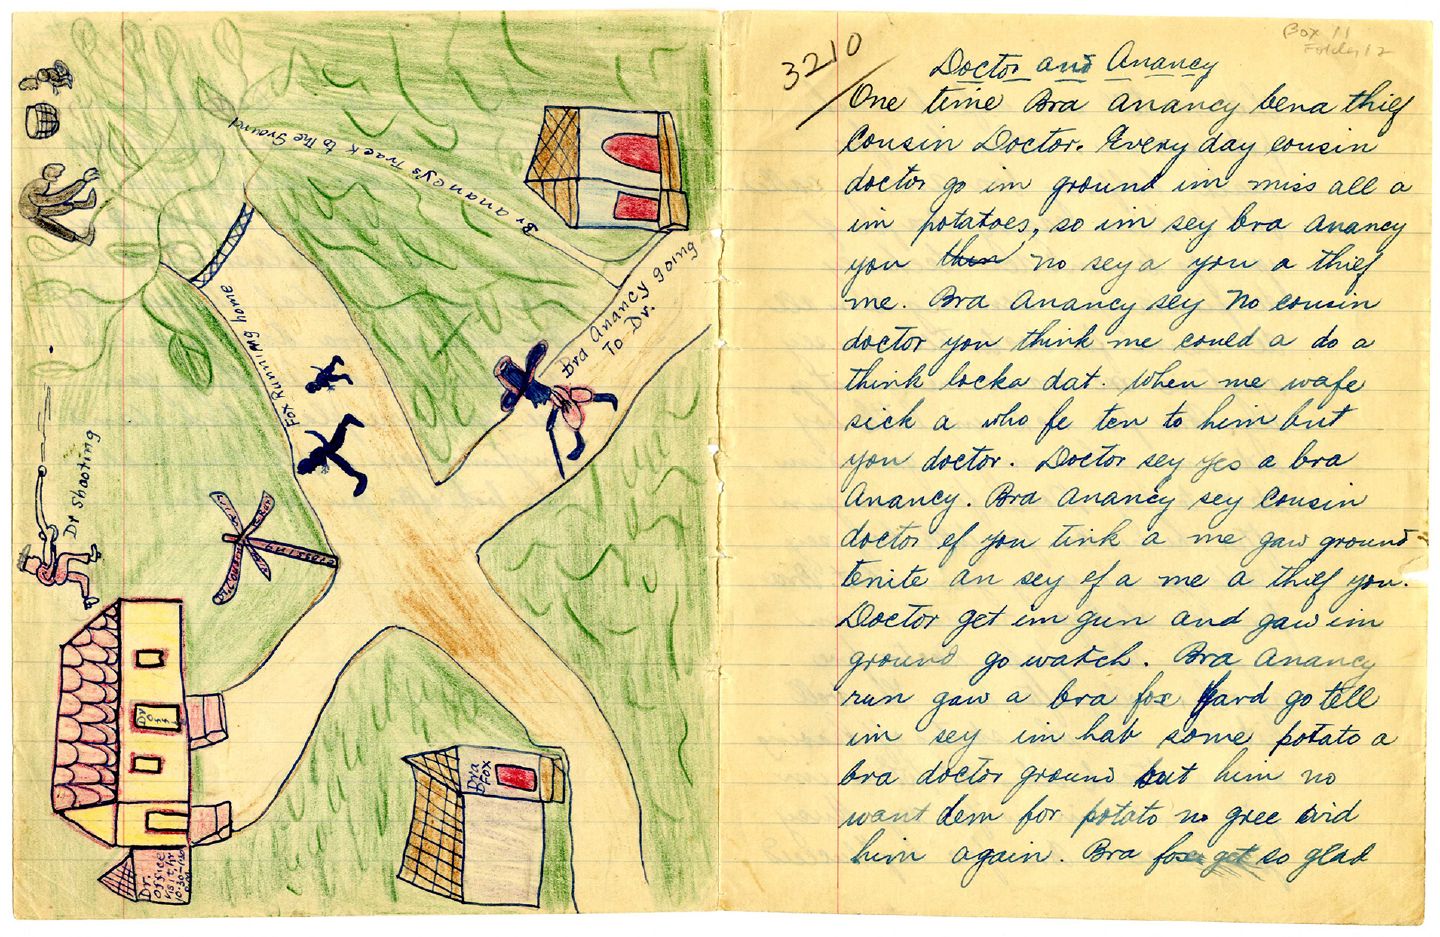 Br anancy's track to the Ground
Fox Running home
Bra Anancy going
To Dr.
Dr Shooting
Dr
off
Bra
Fox
Dr.
office
Visit Hr
10:30-
3210
Box 11
Folder 12
Doctor and Anancy
One time Bra Anancy bena thief
Cousin Doctor. Every day cousin
doctor go im ground im miss all a
im potatoes, so im sey bra anancy
you then no sey a you a thief
me. Bra Anancy sey No cousin
doctor you think me could a do a
think locka dat. When me wafe
sick a who fe ten to him but
you doctor. Doctor sey yes a bra
Anancy. Bra Anancy sey Cousin
doctor ef you tink a me gaw ground
tenite an sey ef a me a thief you.
Doctor get im gun and gaw im
ground go watch. Bra Anancy
run gaw a bra fox yard go tell
im sey im hab some potato a
bra doctor ground but him no
want dem for potato no gree wid
him again. Bra fox get so glad